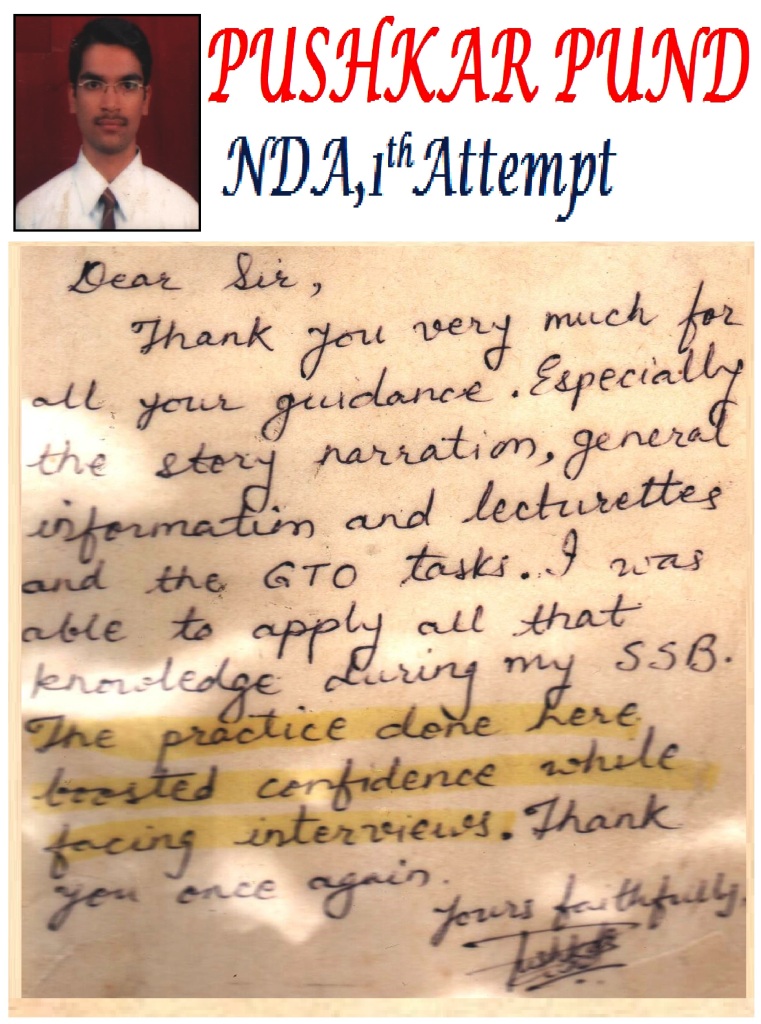 PUSHKAR PUND
NDA,1th Attempt
Dear Sir,
Thank you very much for
all your guidance. Especially
the story narration, general
information and lecturettes
and the GTO tasks. I was
able to apply all that
knowledge during my SSB.
The practice done here
boosted confidence while
facing interviews. Thank
you once again.
Yours faithfully,